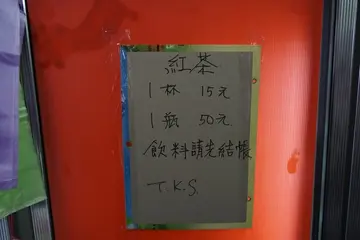 紅茶
1杯 15元
1瓶 50元
飲料請先結帳
T.K.S.